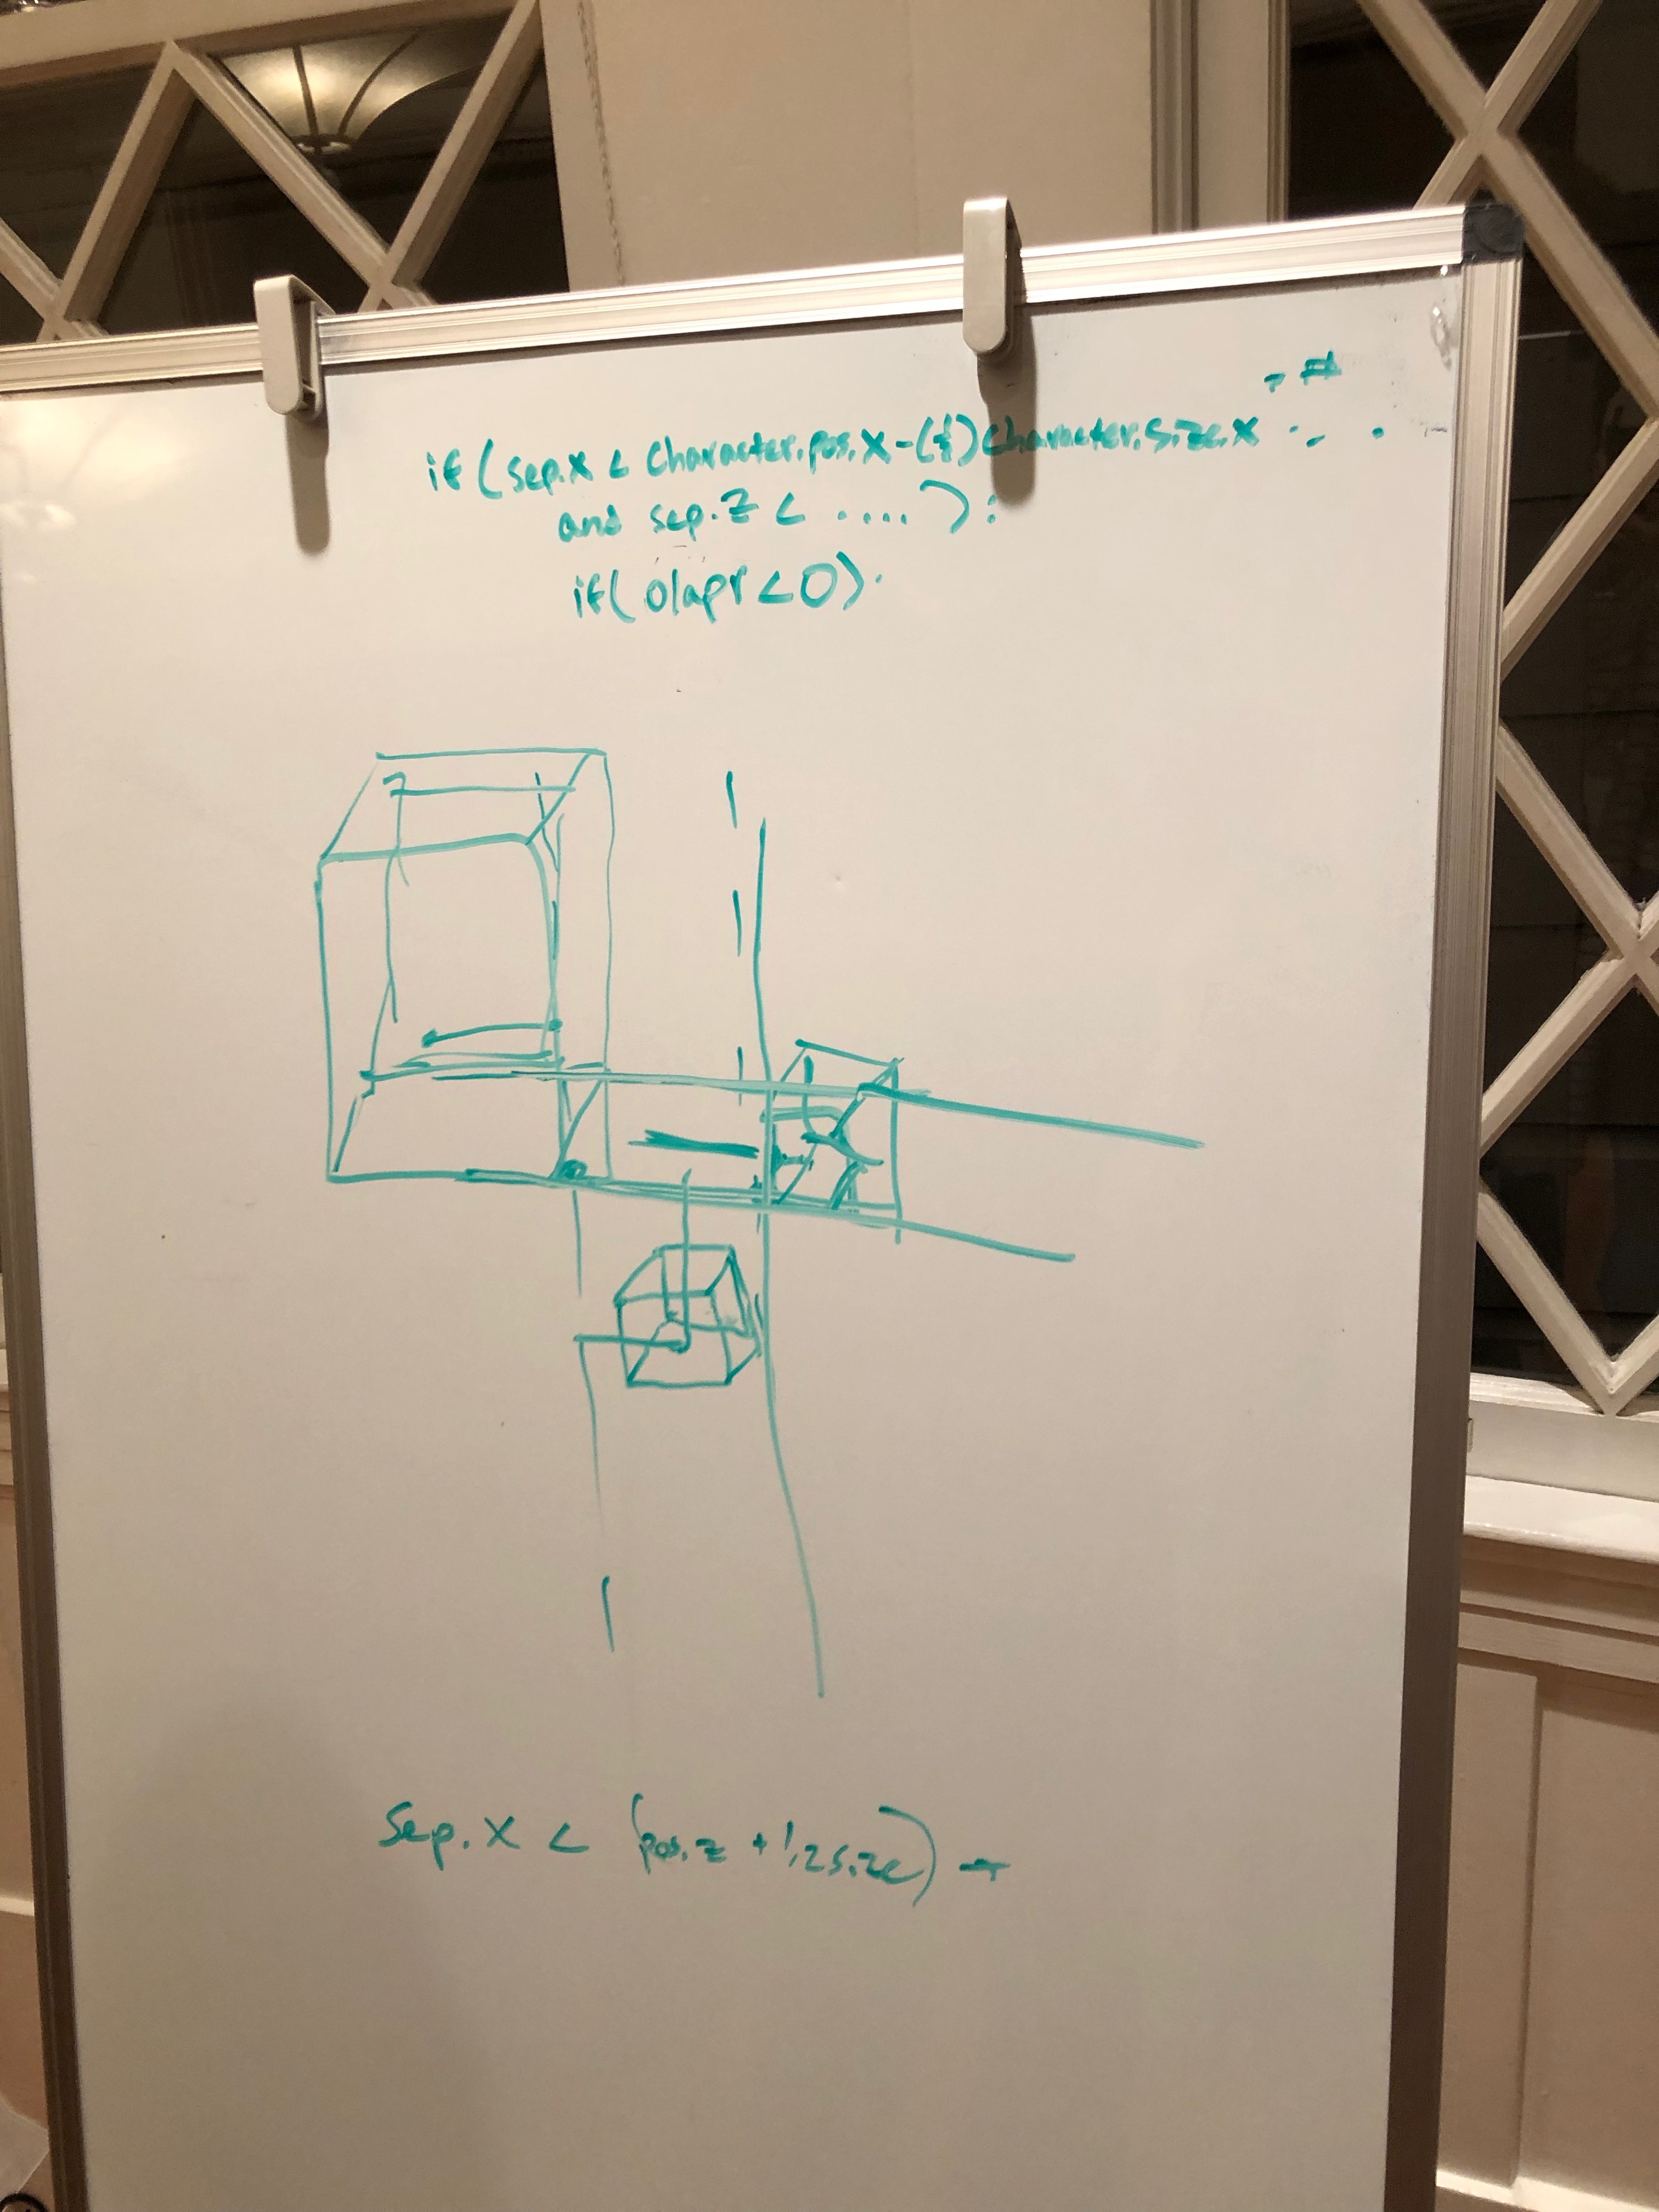 if (sep.x < Character.pos.X - (½) Character.size.x
and sep.z < ....):
if( olapr < 0)
Sep. X < (pos.z + 1/2 size) +